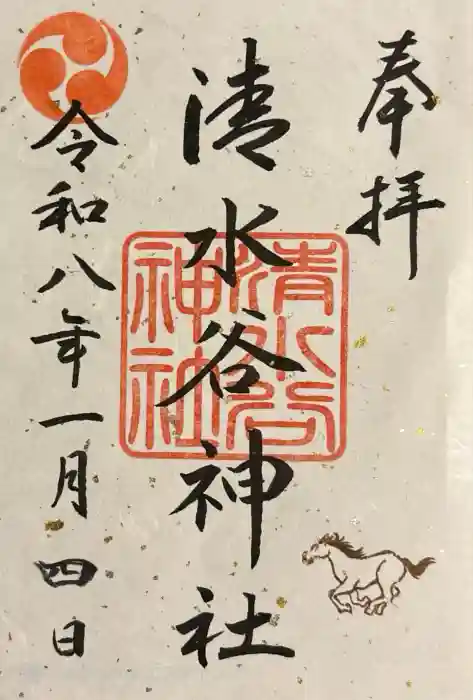 奉拝
清水谷神社
清水谷
神社
令和八年一月四日